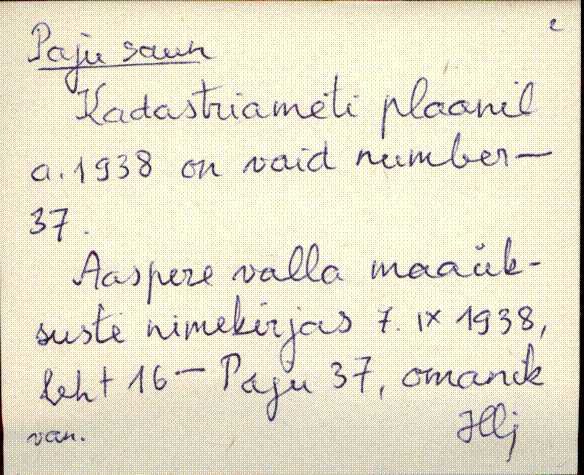 Paju saun
Kadastriameti plaanil
a. 1938 on vaid number—
37.
Aaspere valla maaük-
suste nimekirjas 7. IX 1938,
leht 16 — Paju 37, omanik
van.